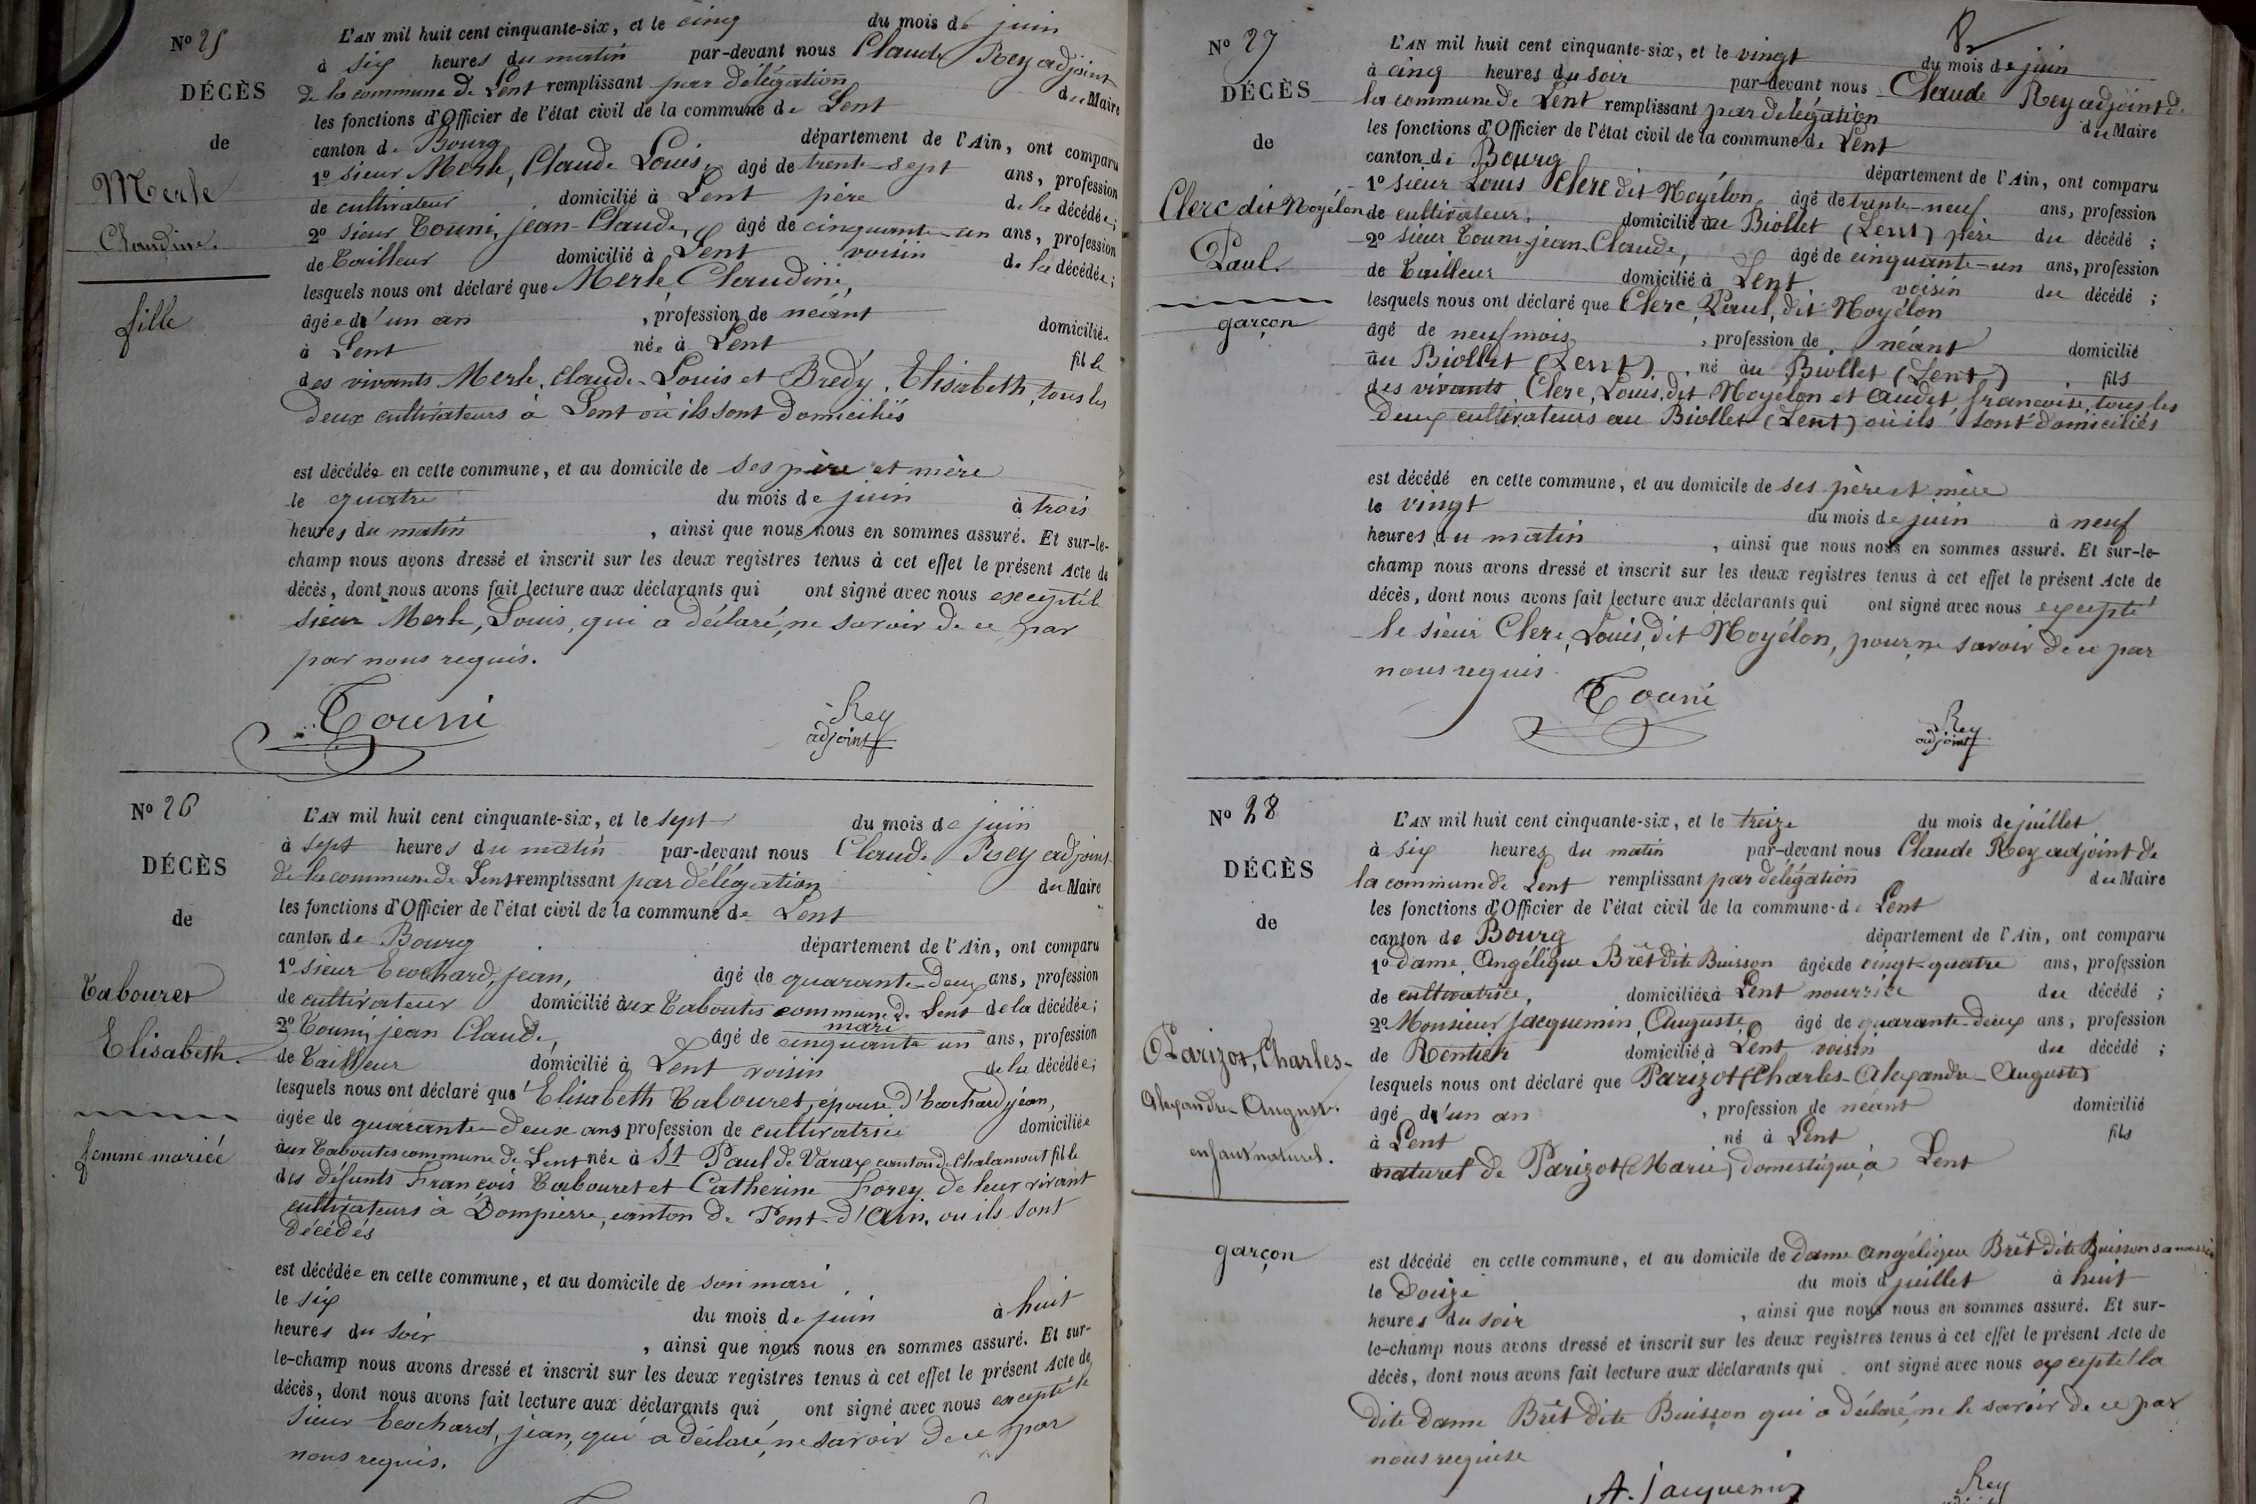 Nº 25
DÉCÈS
de
Merle
Claudine.
fille
L'AN mil huit cent cinquante-six, et le cinq du mois de juin
à six heures du matin par-devant nous Claude Rey adjoint
de la commune de Lent remplissant par délégation du Maire
les fonctions d'Officier de l'état civil de la commune de Lent
canton de Bourg département de l'Ain, ont comparu
1º sieur Merle, Claude Louis, âgé de trente-sept ans, profession
de cultivateur domicilié à Lent père de la décédée;
2º sieur Touni, jean-Claude, âgé de cinquante-un ans, profession
de Tailleur domicilié à Lent voisin de la décédée;
lesquels nous ont déclaré que Merle Claudine,
âgée d'un an, profession de néant domiciliée
à Lent née à Lent fille
des vivants Merle, Claude-Louis et Bredy, Elisabeth, tous les
deux cultivateurs à Lent où ils sont domiciliés
est décédée en cette commune, et au domicile de ses père et mère
le quatre du mois de juin à trois
heures du matin, ainsi que nous nous en sommes assuré. Et sur-le-
champ nous avons dressé et inscrit sur les deux registres tenus à cet effet le présent Acte de
décès, dont nous avons fait lecture aux déclarants qui ont signé avec nous excepté le
sieur Merle, Louis, qui a déclaré, ne savoir de ce par
par nous requis.
Touni
Rey
adjoint
Nº 26
DÉCÈS
de
Tabouret
Elisabeth.
femme mariée
L'AN mil huit cent cinquante-six, et le sept du mois de juin
à sept heures du matin par-devant nous Claude Rey adjoint
de la commune de Lent remplissant par délégation du Maire
les fonctions d'Officier de l'état civil de la commune de Lent
canton de Bourg département de l'Ain, ont comparu
1º sieur Ecochard, jean, âgé de quarante-deux ans, profession
de cultivateur domicilié aux Taboutis commune de Lent de la décédée;
mari
2º Touni, jean Claude, âgé de cinquante un ans, profession
de Tailleur domicilié à Lent voisin de la décédée;
lesquels nous ont déclaré que Elisabeth Tabouret, épouse d'Ecochard, jean,
âgée de quarante-deux ans profession de cultivatrice domiciliée
aux Taboutis commune de Lent née à St Paul de Varax canton de Chalamont fille
des défunts François Tabouret et Catherine Forey, de leur vivant
cultivateurs à Dompierre, canton de Pont-d'Ain, où ils sont
décédés
est décédée en cette commune, et au domicile de son mari
le six du mois de juin à huit
heures du soir, ainsi que nous nous en sommes assuré. Et sur-
le-champ nous avons dressé et inscrit sur les deux registres tenus à cet effet le présent Acte de
décès, dont nous avons fait lecture aux déclarants qui ont signé avec nous excepté le
sieur Ecochard, jean, qui a déclaré, ne savoir de ce par
nous requis.
8
Nº 27
DÉCÈS
de
Clerc dit Noyélon
Paul.
garçon
L'AN mil huit cent cinquante-six, et le vingt du mois de juin
à cinq heures du soir par-devant nous Claude Rey adjoint de
la commune de Lent remplissant par délégation du Maire
les fonctions d'Officier de l'état civil de la commune de Lent
canton de Bourg département de l'Ain, ont comparu
1º sieur Louis Clerc dit Noyélon, âgé de trente-neuf ans, profession
de cultivateur, domicilié au Biollet (Lent) père du décédé;
2º sieur Touni jean-Claude, âgé de cinquante-un ans, profession
de Tailleur domicilié à Lent, voisin du décédé;
lesquels nous ont déclaré que Clerc, Paul, dit Noyélon
âgé de neuf mois, profession de néant domicilié
au Biollet (Lent), né au Biollet (Lent) fils
des vivants Clerc, Louis, dit Noyélon et Audet, francoise, tous les
deux cultivateurs au Biollet (Lent) où ils sont domiciliés
est décédé en cette commune, et au domicile de ses père et mère
le vingt du mois de juin à neuf
heures du matin, ainsi que nous nous en sommes assuré. Et sur-le-
champ nous avons dressé et inscrit sur les deux registres tenus à cet effet le présent Acte de
décès, dont nous avons fait lecture aux déclarants qui ont signé avec nous excepté
le sieur Clerc, Louis, dit Noyélon, pour ne savoir de ce par
nous requis.
Touni
Rey
adjoint
Nº 28
DÉCÈS
de
Parizot, Charles-
Alexandre-Auguste.
enfant naturel.
garçon
L'AN mil huit cent cinquante-six, et le treize du mois de juillet
à six heures du matin par-devant nous Claude Rey adjoint de
la commune de Lent remplissant par délégation du Maire
les fonctions d'Officier de l'état civil de la commune de Lent
canton de Bourg département de l'Ain, ont comparu
1º dame, Angélique Brêt dite Buisson âgée de vingt-quatre ans, profession
de cultivatrice, domiciliée à Lent nourrice du décédé;
2º Monsieur jacquemin, Auguste, âgé de quarante-deux ans, profession
de Rentier domicilié à Lent voisin du décédé;
lesquels nous ont déclaré que Parizot (Charles-Alexandre-Auguste)
âgé d'un an, profession de néant domicilié
à Lent né à Lent fils
naturel de Parizot (Marie), domestique, à Lent
est décédé en cette commune, et au domicile de dame Angélique Brêt dite Buisson sa nourrice
le douze du mois d juillet à huit
heures du soir, ainsi que nous nous en sommes assuré. Et sur-
le-champ nous avons dressé et inscrit sur les deux registres tenus à cet effet le présent Acte de
décès, dont nous avons fait lecture aux déclarants qui ont signé avec nous excepté la
dite dame Brêt dite Buisson qui a déclaré, ne le savoir de ce par
nous requise
A. Jacquemin
Rey